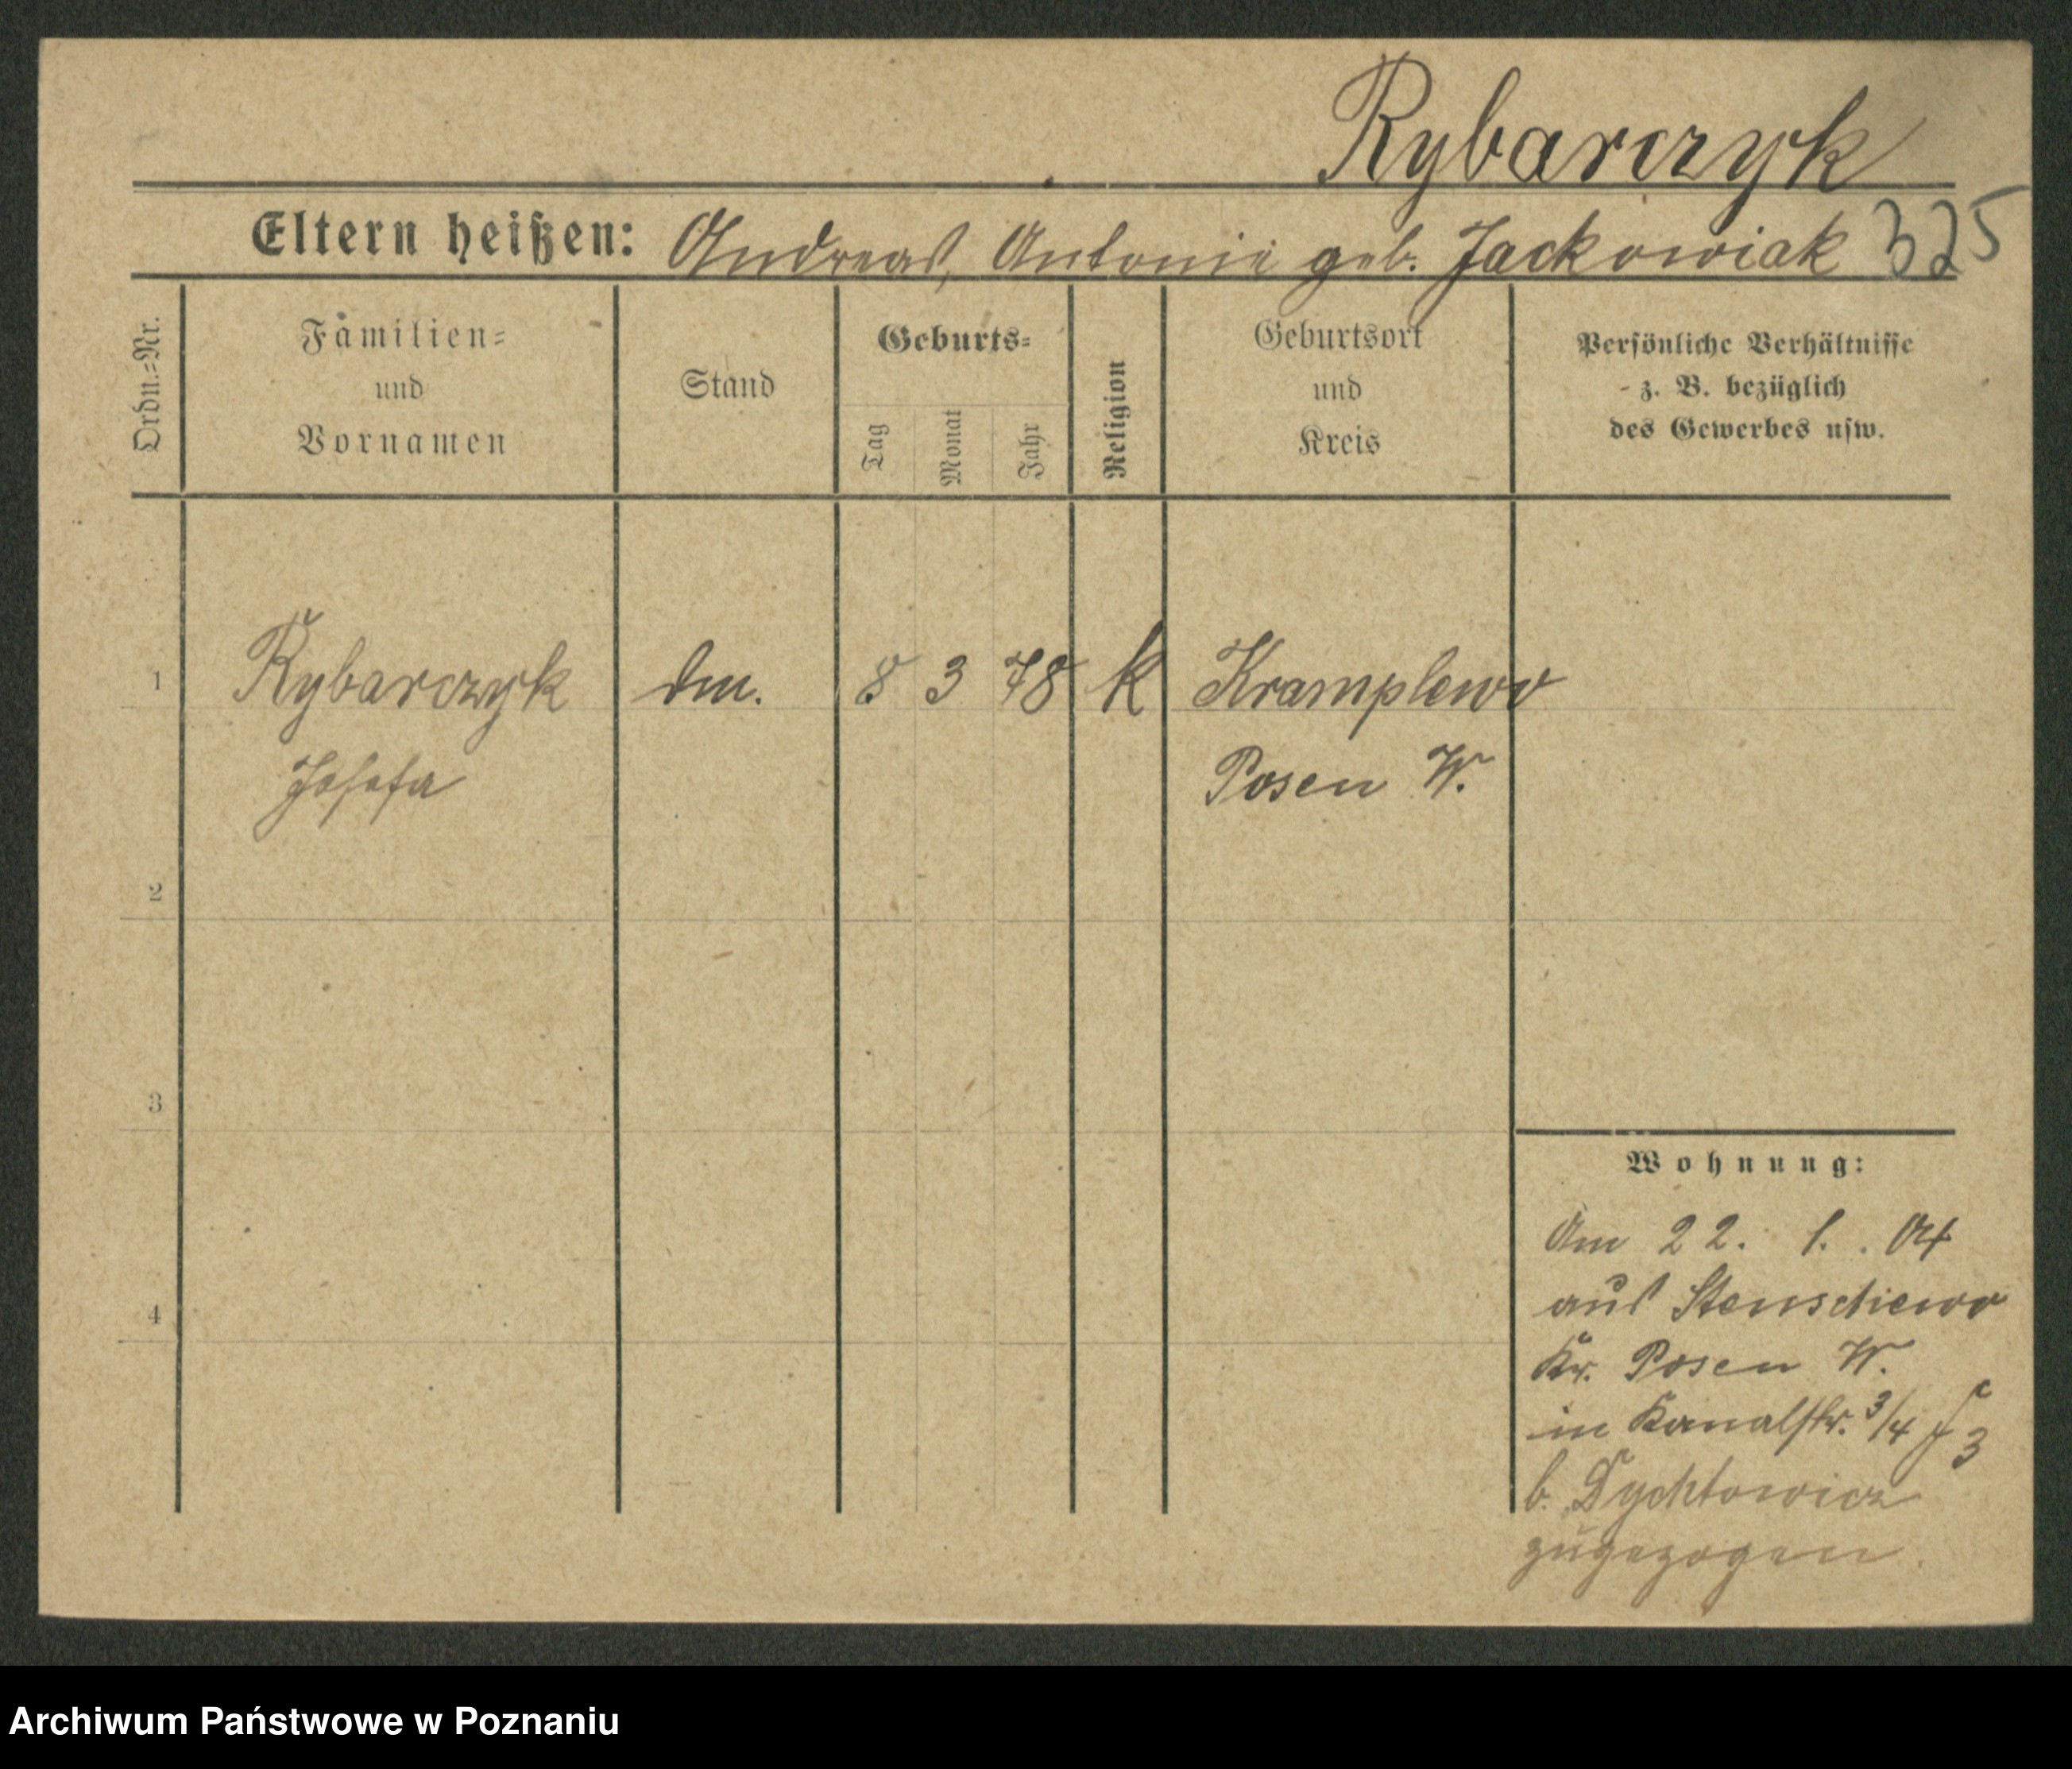 Rybarczyk
Eltern heißen: Andreas, Antonie geb. Jackowiak 325
Ordn.-Nr.
Familien-
und
Vornamen
Stand
Geburts-
Tag
Monat
Jahr
Religion
Geburtsort
und
Kreis
Persönliche Verhältnisse
z. B. bezüglich
des Gewerbes usw.
1 Rybarczyk dm. 8 3 78 k Kramplewo
Josefa Posen W.
2
3
4
Wohnung:
Am 22. 1. 04
aus Stenschewo
Kr. Posen W.
in Kanalstr. 3/4 3
b. Dychtowicz
zugezogen.
Archiwum Państwowe w Poznaniu